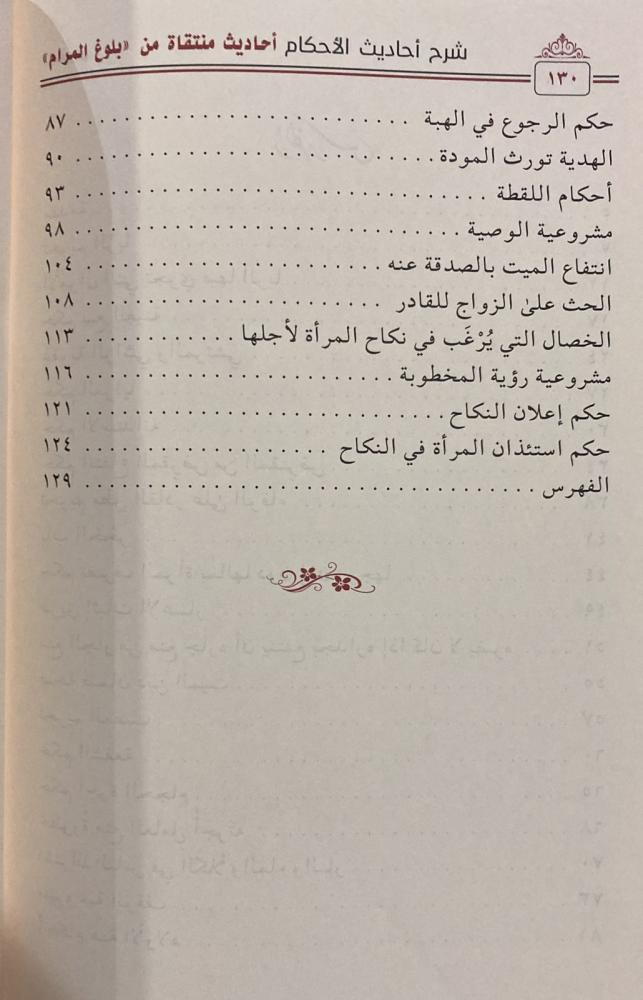 شرح أحاديث الأحكام أحاديث منتقاة من «بلوغ المرام»
١٣٠
حكم الرجوع في الهبة . . . . . . . . . . . . . . . . . . . . . . . . . . ٨٧
الهدية تورث المودة . . . . . . . . . . . . . . . . . . . . . . . . . . ٩٠
أحكام اللقطة . . . . . . . . . . . . . . . . . . . . . . . . . . . . . . ٩٣
مشروعية الوصية . . . . . . . . . . . . . . . . . . . . . . . . . . . . ٩٨
انتفاع الميت بالصدقة عنه . . . . . . . . . . . . . . . . . . . . . . ١٠٤
الحث علىٰ الزواج للقادر . . . . . . . . . . . . . . . . . . . . . . ١٠٨
الخصال التي يُرْغَب في نكاح المرأة لأجلها . . . . . . . . . . . . ١١٣
مشروعية رؤية المخطوبة . . . . . . . . . . . . . . . . . . . . . . ١١٦
حكم إعلان النكاح . . . . . . . . . . . . . . . . . . . . . . . . . . ١٢١
حكم استئذان المرأة في النكاح . . . . . . . . . . . . . . . . . . . ١٢٤
الفهرس . . . . . . . . . . . . . . . . . . . . . . . . . . . . . . . . . ١٢٩